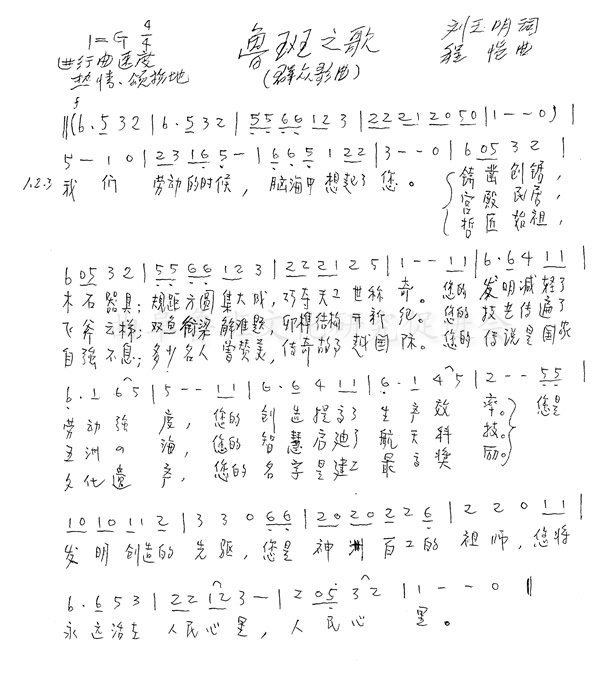 1=G 4/4
鲁班之歌
刘玉明 词
进行曲速度
(群众歌曲)
程 恺 曲
热情、颂扬地
f
‖(6·5 3 2 | 6·5 3 2 | 5 5 6 6 1 2 3 | 2 2 2 1 2 0 5 0 | 1 - - 0) |
5 - 1 0 | 2 3 1 6 5 - | 6 6 5 1 2 2 | 3 - - 0 | 6 0 5 3 2 |
1.2.3 我 们 劳动的时候, 脑海中想起了 您。
锛凿创锯,
宫殿民居,
哲匠始祖,
6 0 5 3 2 | 5 5 6 6 1 2 3 | 2 2 2 1 2 5 | 1 - - 1 1 | 6·6 4 1 1 |
木石器具; 规距方圆集大成, 巧夺天工世称奇。 您的 发明减轻了
飞斧云梯; 双鱼 梁解难题, 卯榫结构开新纪。 您的 技艺传遍了
自强不息; 多少名人曾赞美, 传奇故了越国际。 您的 传说是国家
6·1 6 5 | 5 - - 1 1 | 6·6 4 1 1 | 6·1 4 5 | 2 - - 5 5 |
劳动强 度, 您的 创造提高了 生产效 率。 您是
五洲四 海, 您的 智慧启迪了 航天科 技。
文化遗 产, 您的 名字是建工 最高奖 励。
1 0 1 0 1 1 2 | 3 3 0 6 6 | 2 0 2 0 2 2 6 | 2 2 0 1 1 |
发明创造的 先驱, 您是 神洲百工的 祖师, 您将
6·6 5 3 | 2 2 1 2 3 - | 2 0 5 3 2 | 1 - - 0 ‖
永远活在 人民心里, 人民心 里。